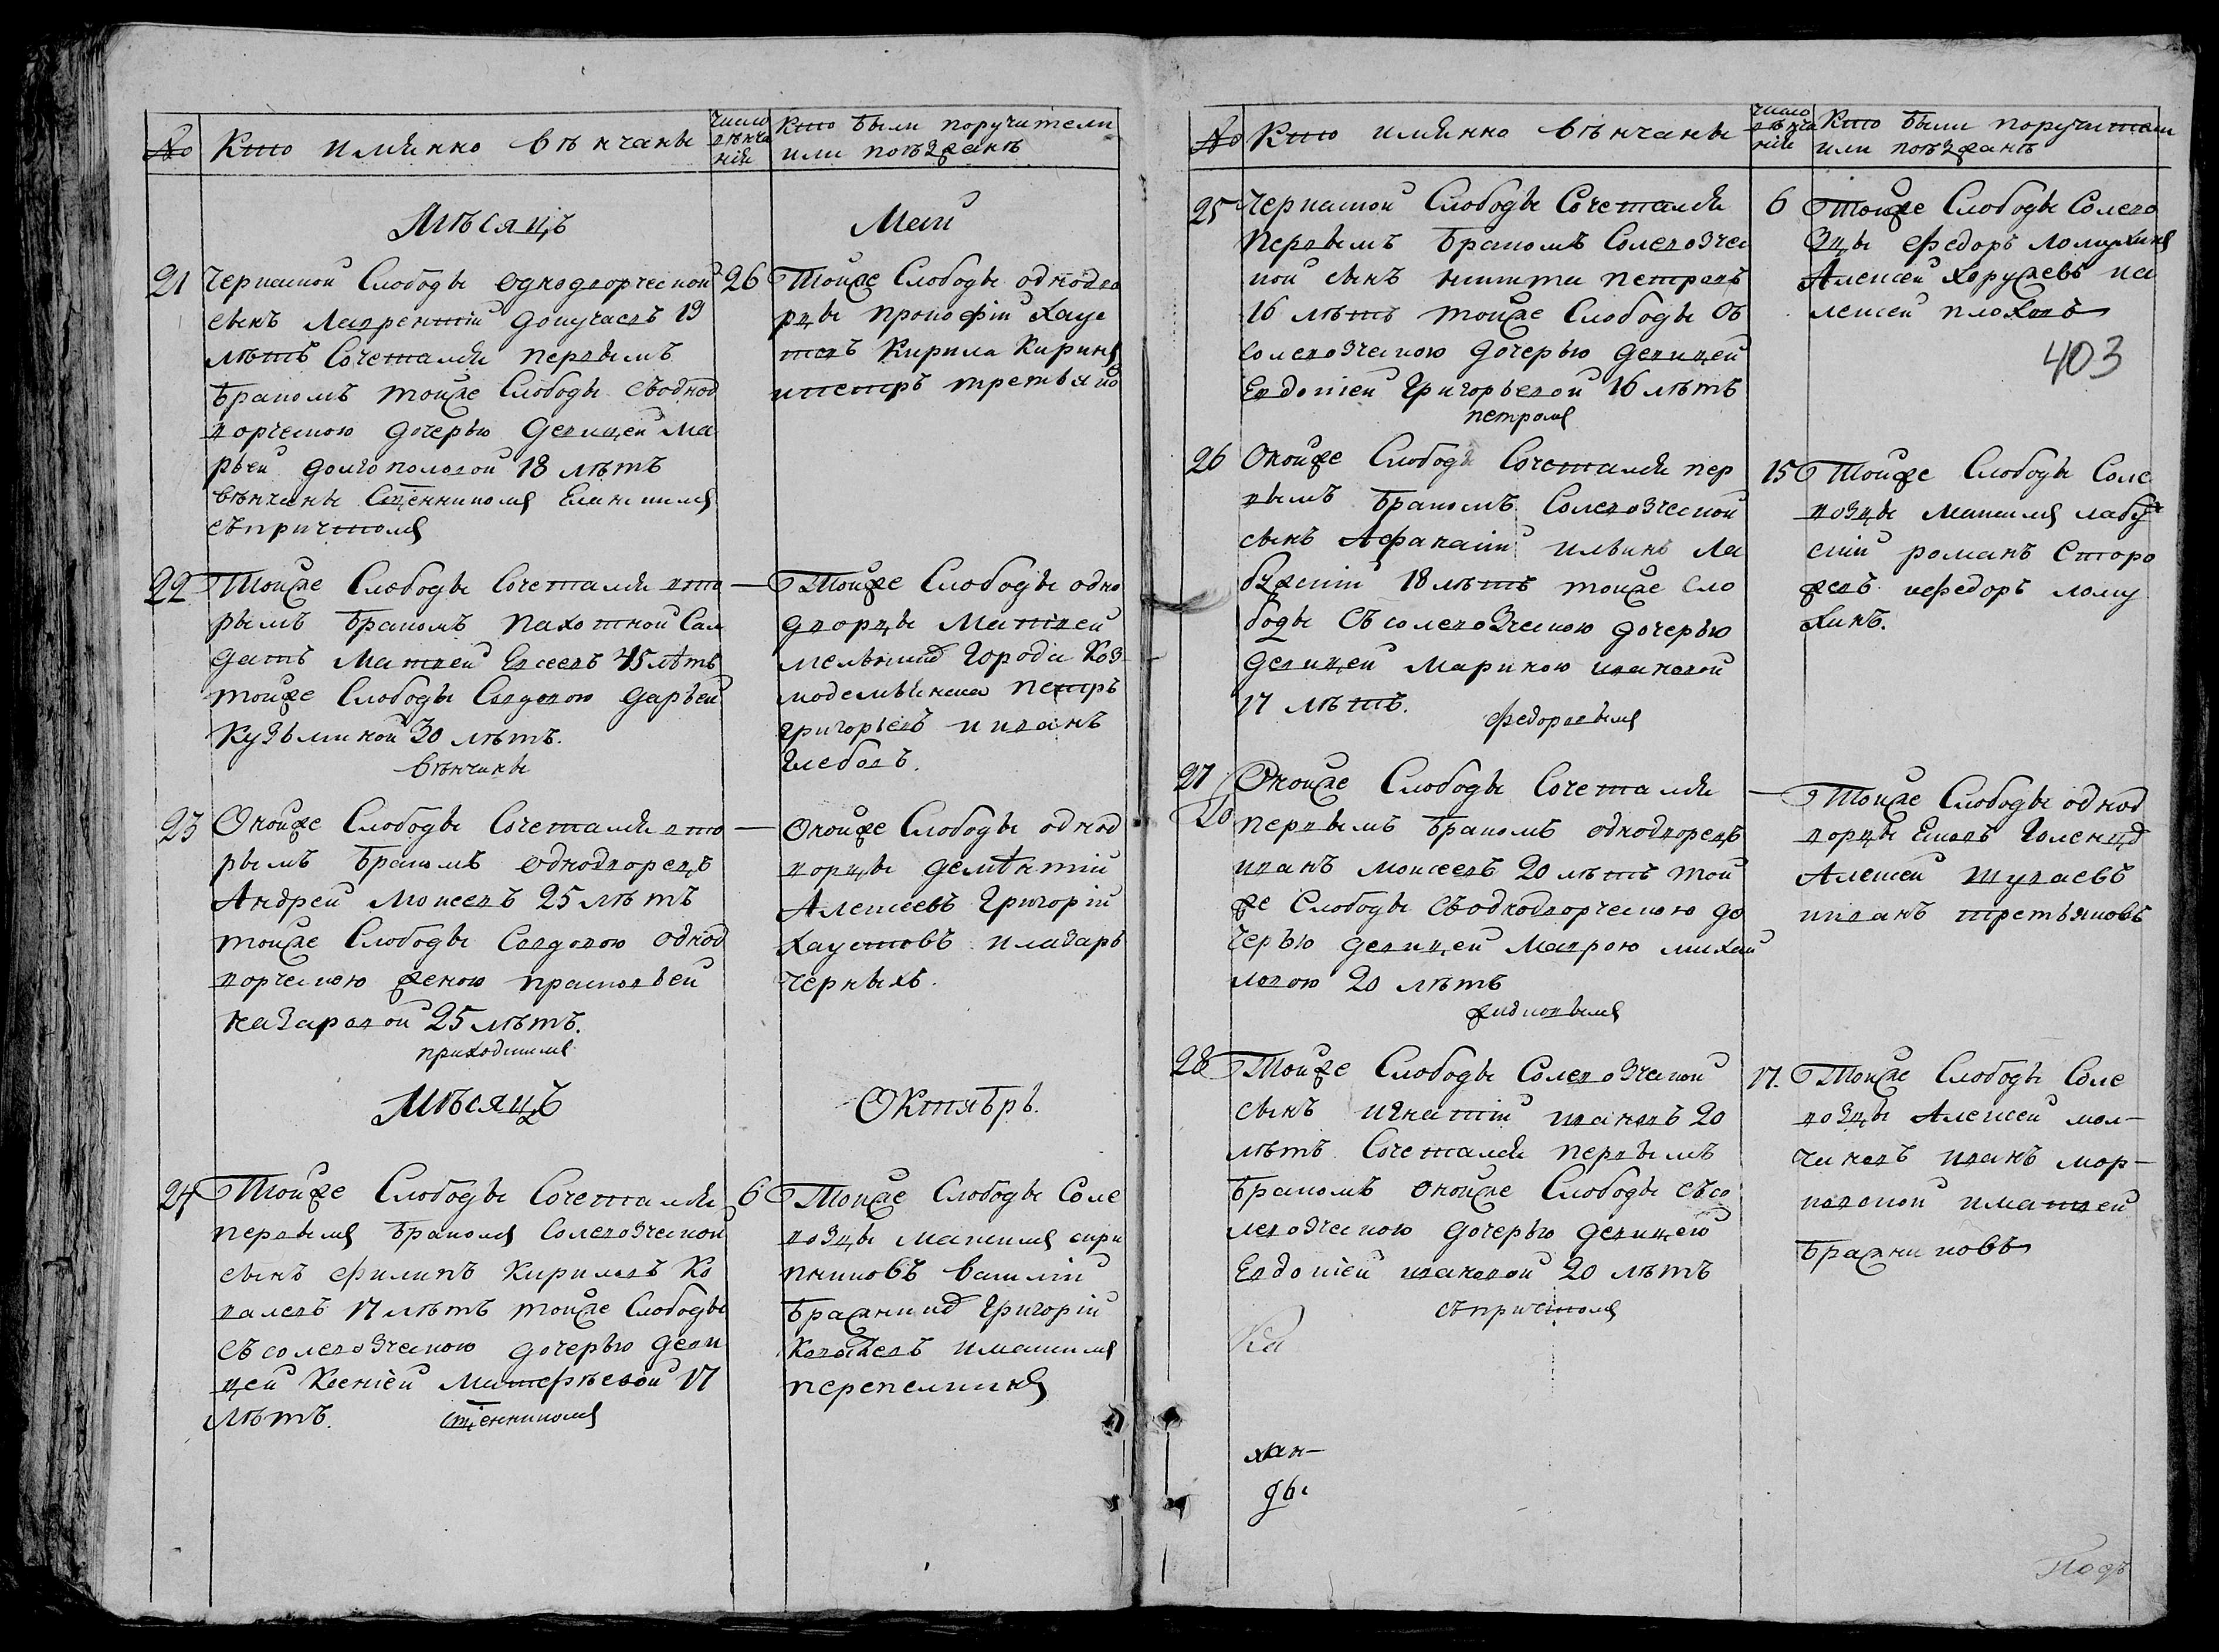 № Кто имянно вѣнчаны
число вѣнча
нія
Кто были поручители
или поѣзжанѣ
Мѣсяцъ
Маій
21 Черкаской Слободы однодворческой
сынъ Лаврентій допучаевъ 19
лѣтъ Сочетался первымъ
бракомъ тойже Слободы съоднод
ворческою дочерью девицей Ма
рьей долгополовой 18 лѣтъ
вѣнчаны Сщенникомъ
съпричтомъ
26 Тойже Слободы однодво
рцы прокофій Хаус
товъ Кирила Киринъ
ипетръ третьяко
22 Тойже Слободы Сочетался вто
рымъ бракомъ пахотной Сал
датъ Матвей Евсеевъ 45 лѣтъ
тойже Слободы Совдовою дарьей
Кузьминой 30 лѣтъ.
вѣнчаны
— Тойже Слободы одно
дворцы Матвей
мельники города Коз
модемьянска петръ
григорьевъ и иванъ
глебовъ.
23 Оной же Слободы Сочетался вто
рымъ бракомъ однодворецъ
Андрей Моисеевъ 25 лѣтъ
тойже Слободы Совдовою однод
ворческою женою прасковьей
назаровой 25 лѣтъ.
приходскимъ
— Оной же Слободы однод
ворцы дементій
Алексеевъ Григорій
Хаустовъ илазарь
черныхъ.
Мѣсяцъ
Октябрь.
24 Тойже Слободы Сочетался
первымъ бракомъ Солевозческой
сынъ Филипъ Кириловъ Ко
валевъ 17 лѣтъ тойже Слободы
съсолевозческою дочерью деви
цей Ксеніей Матефѣевой 17
лѣтъ.
сщенникомъ
6 Тойже Слободы Соле
возцы Максимъ скри
пниковъ василій
бражник Григорій
имаксимъ
перепелкинъ
№ Кто имянно вѣнчаны
число вѣнча
нія
Кто были поручители
или поѣзжанѣ
25 Черкаской Слободы Сочетался
первымъ бракомъ Солевозчес
кой сынъ никита петровъ
16 лѣтъ тойже Слободы съ
солевозческою дочерью девицей
Евдокіей Григорьевой 16 лѣтъ
петромъ
6 Тойже Слободы Солево
зцы федоръ ломухинъ
Алексей Хоружевъ иа
лексей плоховъ
403
26 Оной же Слободы Сочетался пер
вымъ бракомъ Солевозческой
сынъ Афанасій ильинъ Ла
бузскій 18 лѣтъ тойже сло
боды Съсолевозческою дочерью
девицей Мариною ивановой
17 лѣтъ.
федоровымъ
15 Тойже Слободы Соле
возцы Максимъ лабуз
скій романъ Сторо
жевъ ифедоръ лому
хинъ.
27 Оной же Слободы Сочетался
первымъ бракомъ однодворецъ
иванъ моисеевъ 20 лѣтъ той
же Слободы Съоднодворческою до
черью девицей Маврою михай
ловою 20 лѣтъ
— Тойже Слободы однод
ворцы
Алексей шуваевъ
ииванъ третьяковъ
28 Тойже Слободы Солевозческой
сынъ игнатій ивановъ 20
лѣтъ Сочетался первымъ
бракомъ оной же Слободы съсо
левозческою дочерью девицею
Евдокіей ивановой 20 лѣтъ
съпричтомъ
17. Тойже Слободы Соле
возцы Алексей мол-
чановъ иванъ мор-
ковской иматвей
бражниковъ